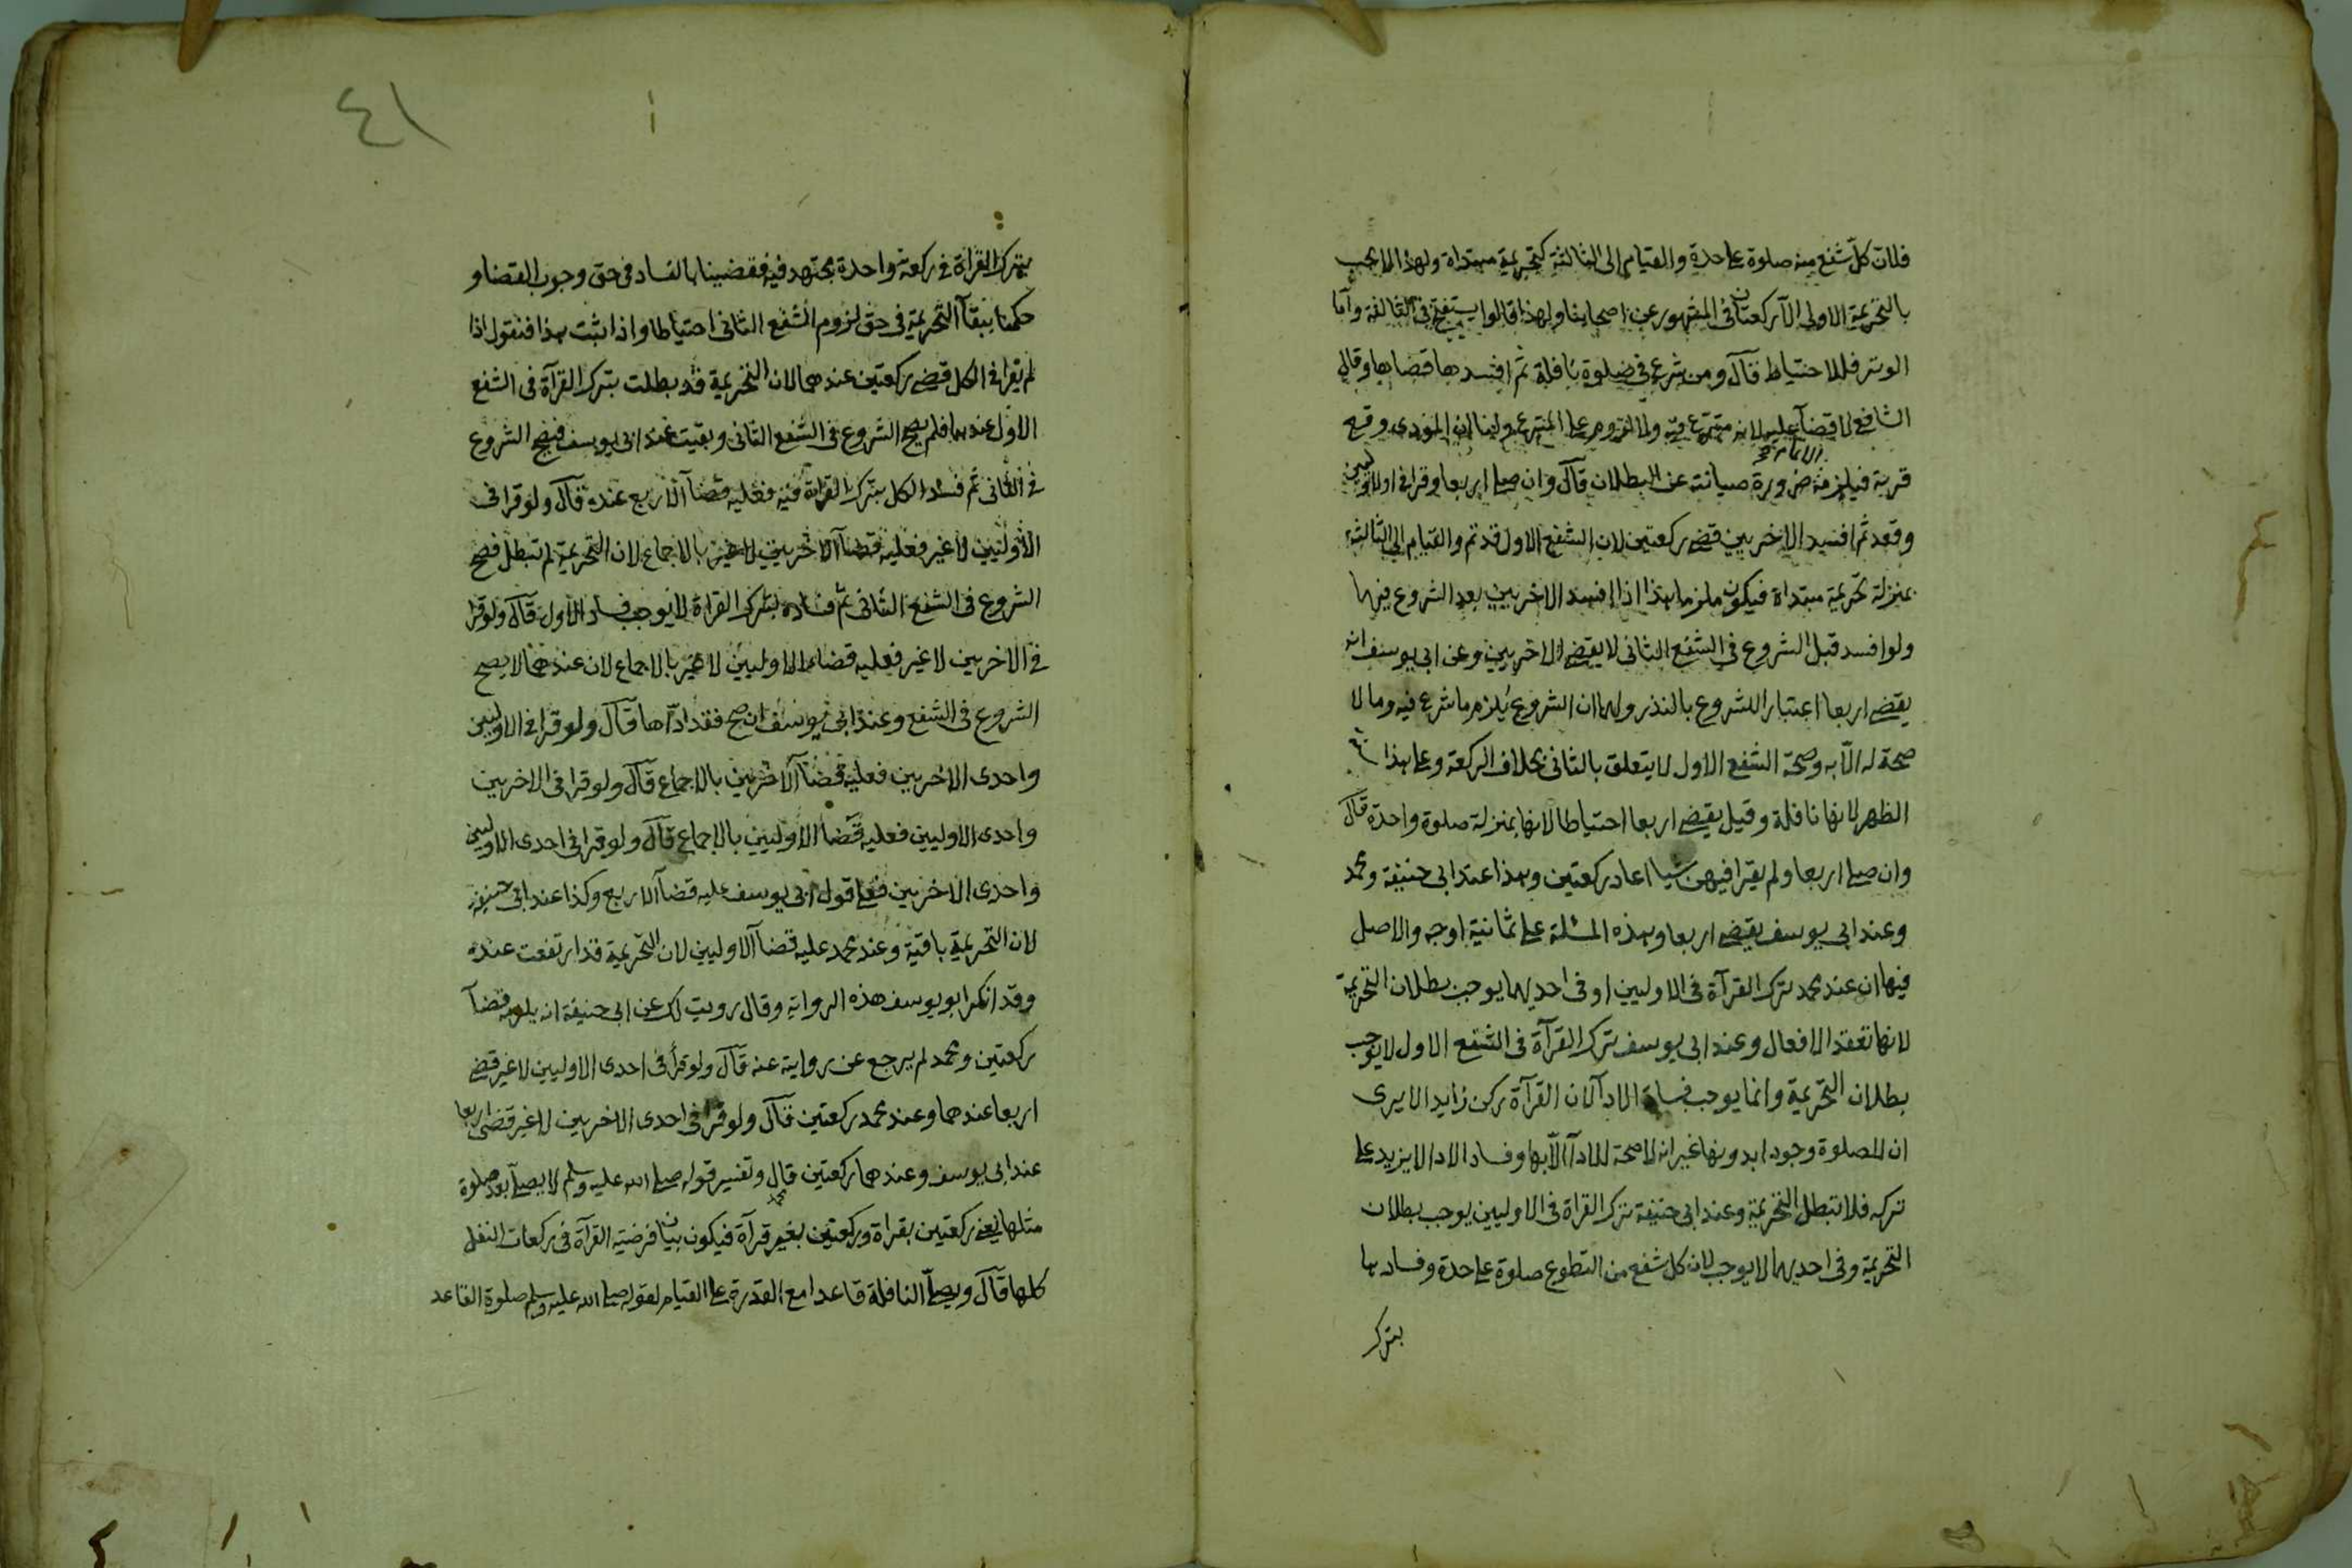 فلان كل شفع منه صلوة على حدة والقيام الى الثالثة كتحريمة مبتداة ولهذا لا يجب
بالتحريمة الاولى الا ركعتان فى المشهور عن اصحابنا ولهذا قالوا يستفتح فى الثالثة واما
الوتر فللاحتياط قال ومن شرع فى صلوة نافلة ثم افسدها قضاها وقال
الشافعى لا قضآ عليه لانه متبرع فيه ولا لزوم على المتبرع ولنا ان المؤدى وقع
قربة فيلزمه الاتمام ضرورة صيانته عن البطلان قال وان صلى اربعا وقرا فى الاوليين
وقعد ثم افسد الاخريين قضى ركعتين لان الشفع الاول قد تم والقيام الى الثالثة
بمنزلة تحريمة مبتداة فيكون ملزما هذا اذا افسد الاخريين بعد الشروع فيهما
ولو افسد قبل الشروع فى الشفع الثانى لا يقضى الاخريين وعن ابى يوسف انه
يقضى اربعا اعتبارا للشروع بالنذر ولهما ان الشروع يلزم ما شرع فيه وما لا
صحة له الا به وصحة الشفع الاول لا يتعلق بالثانى بخلاف الركعة وعلى هذا سنة
الظهر لانها نافلة وقيل يقضى اربعا احتياطا لانها بمنزلة صلوة واحدة قال
وان صلى اربعا ولم يقرا فيهن شيا اعاد ركعتين وهذا عند ابى حنيفة ومحمد
وعند ابى يوسف يقضى اربعا وهذه المسئلة على ثمانية اوجه والاصل
فيها ان عند محمد ترك القرآة فى الاوليين او فى احديهما يوجب بطلان التحريمة
لانها تعقد الافعال وعند ابى يوسف ترك القرآة فى الشفع الاول لا يوجب
بطلان التحريمة وانما يوجب فساد الادآ لان القرآة ركن زايد الا يرى
ان للصلوة وجودا بدونها غير انه لا صحة للادآ الا بها وفساد الادا لا يزيد على
تركه فلا تبطل التحريمة وعند ابى حنيفة ترك القراة فى الاوليين يوجب بطلان
التحريمة وفى احديهما لا يوجب لان كل شفع من التطوع صلوة على حدة وفسادها
بترك
٤١
بترك القراة فى ركعة واحدة مجتهد فيه فقضينا بالفساد فى حق وجوب القضا و
حكمنا ببقآ التحريمة فى حق لزوم الشفع الثانى احتياطا واذا ثبت هذا فنقول اذا
لم يقرا فى الكل قضى ركعتين عندهما لان التحريمة قد بطلت بترك القرآة فى الشفع
الاول عندهما فلم يصح الشروع فى الشفع الثانى وبقيت عند ابى يوسف فيصح الشروع
فى الثانى ثم فسد الكل بترك القراة فيه فعليه قضآ الاربع عنده قال ولو قرا فى
الاوليين لا غير فعليه قضآ الاخريين لا غير بالاجماع لان التحريمة لم تبطل فصح
الشروع فى الشفع الثانى ثم فساده بترك القراة لا يوجب فساد الاول قال ولو قرا
فى الاخريين لا غير فعليه قضاء الاوليين لا غير بالاجماع لان عندهما لا يصح
الشروع فى الشفع وعند ابى يوسف ان صح فقد اداها قال ولو قرا فى الاوليين
واحدى الاخريين فعليه قضآ الاخريين بالاجماع قال ولو قرا فى الاخريين
واحدى الاوليين فعليه قضا الاوليين بالاجماع قال ولو قرا فى احدى الاوليين
واحدى الاخريين فعلى قول ابى يوسف عليه قضآ الاربع وكذا عند ابى حنيفة
لان التحريمة باقية وعند محمد عليه قضآ الاوليين لان التحريمة قد ارتفعت عنده
وقد انكر ابو يوسف هذه الرواية وقال رويت لك عن ابى حنيفة انه يلزمه قضآ
ركعتين ومحمد لم يرجع عن روايته عنه قال ولو قرأ فى احدى الاوليين لا غير قضى
اربعا عندهما وعند محمد ركعتين قال ولو قرا فى احدى الاخريين لا غير قضى اربعا
عند ابى يوسف وعندهما ركعتين قال وتفسير قوله صلى الله عليه وسلم لا يصلى بعد صلوة
مثلها يعنى ركعتين بقراة وركعتين بغير قرآة فيكون بيان فرضية القرآة فى ركعات النفل
كلها قال ويصلى النافلة قاعدا مع القدرة على القيام لقوله صلى الله عليه وسلم صلوة القاعد